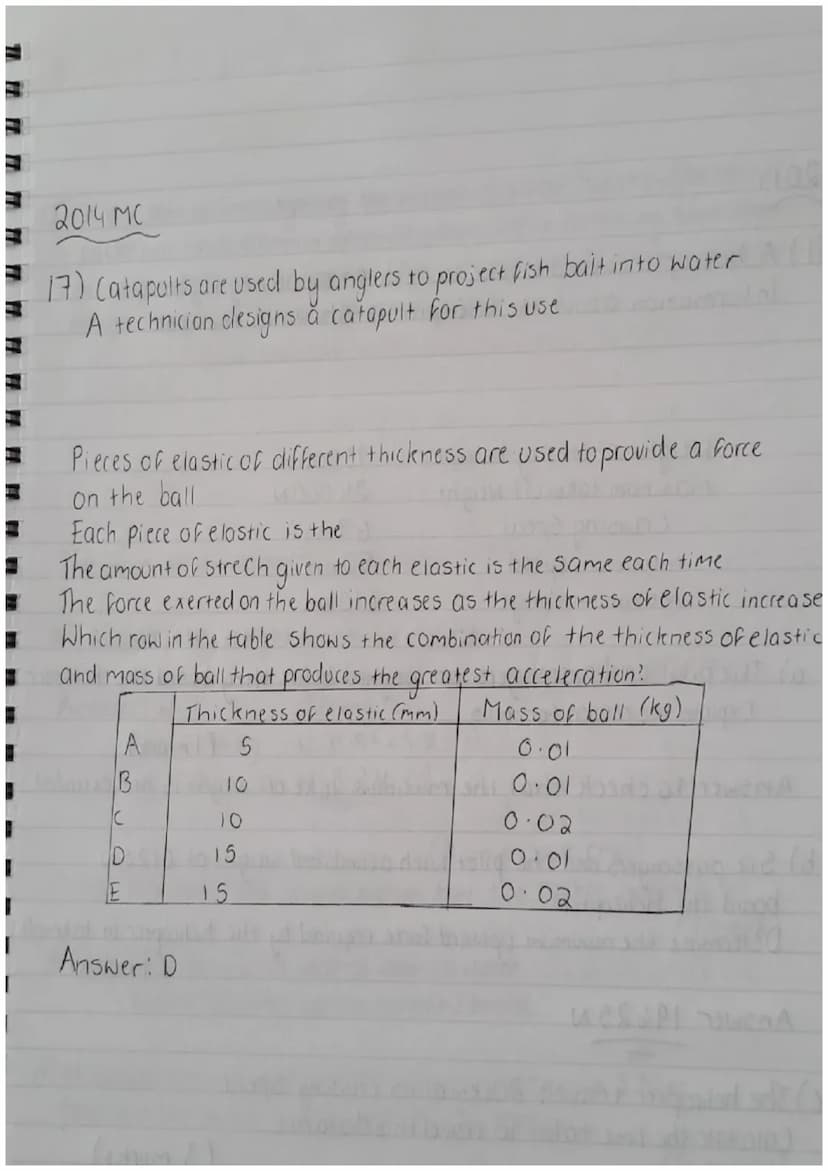 2014 MC
17) Catapults are used by anglers to project fish bait into water
A technician designs a catapult for this use
Pieces of elastic of different thickness are used to provide a force
on the ball
Each piece of elastic is the
The amount of strech given to each elastic is the same each time
The force exerted on the ball increases as the thickness of elastic increase
Which row in the table shows the combination of the thickness of elastic
and mass of ball that produces the greatest acceleration?
Thickness of elastic (mm) Mass of ball (kg)
A 5 0.01
B 10 0.01
C 10 0.02
D 15 0.01
E 15 0.02
Answer: D